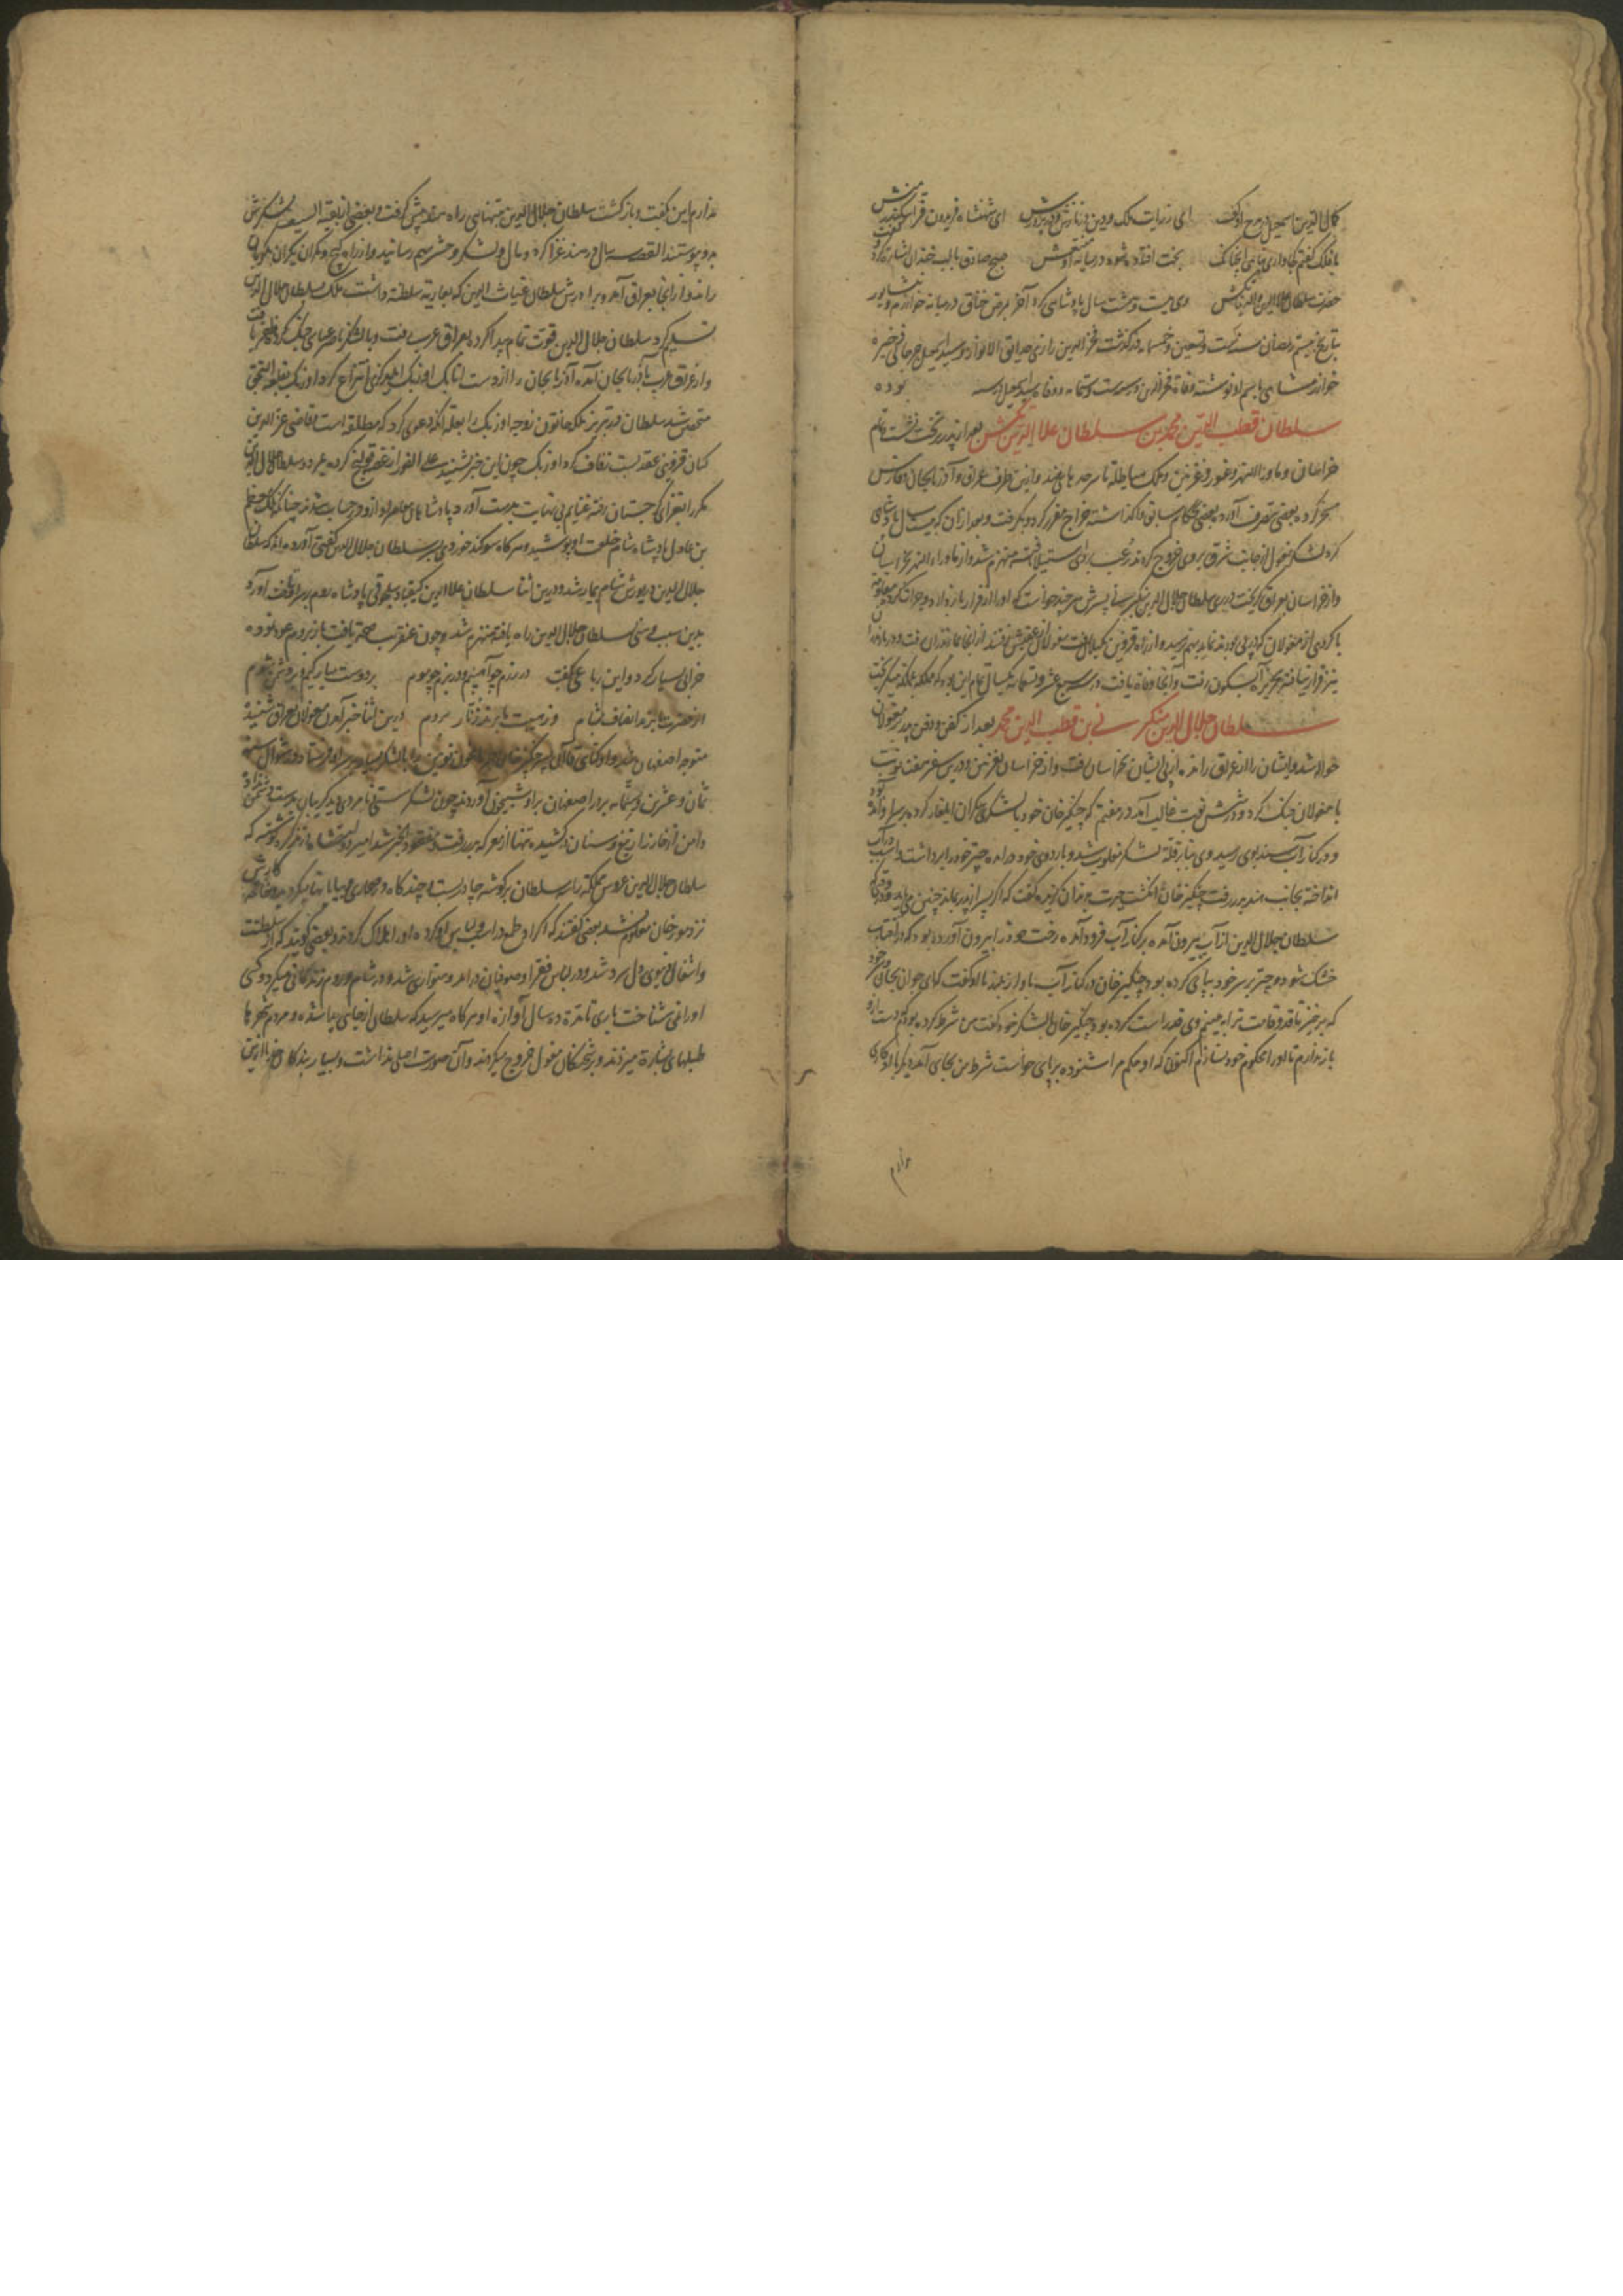 کمال الدین اسمعیل در مدح او گفت ای ز رایت ملک و دین در نازش و در پرورش ای شهنشاه فریدون فر اسکندر منش
با فلک گفتم بخت افتاده شوه در میانه صبح صادق با لب خندان اشارت کرد و گفت
حضرت سلطان علاء الدین والدنیا تکش وی بیست و هشت سال پادشاهی کرد آخر بمرض خناق در میانه خوارزم و نیشابور
بتاریخ بیستم رمضان سنه ست و تسعین و خمسمایه درگذشت فخر الدین رازی حدایق الانوار و سید اسمعیل جرجانی ذخیره
خوارزمشاهی باسم او نوشته وفاة فخر الدین در سنه ست و ستمایه بوده
سلطان قطب الدین محمد بن سلطان علاء الدین تکش بعد از پدر بر تخت نشست تمام
خراسان و ماوراء النهر و غور و غزنین و ملک هیاطله تا سرحد هند و ازین طرف عراق و آذربایجان و فارس
مسخر کرده بعضی بتصرف آورد بعضی بحکام سابق واگذاشته خراج مقرر کرد و بگرفت و بعد از آن که بیست سال پادشاهی
کرد لشکر مغول از جانب شرق بر وی خروج کردند رعب بر وی استیلا یافته منهزم شد و از ماوراء النهر بخراسان
و از خراسان بعراق گریخت پسرش سلطان جلال الدین منکبرنی هر چند خواست که او را از فرار باز دارد و جرات
با گروهی از مغولان که در پی بودند نماید بهم نرسید و از راه قزوین بگیلان رفت مغولان از عقبش رفتند از آنجا بمازندران رفت و در مازندران
نیز قرار نیافته بجزیره آبسکون رفت و آنجا وفاة یافت در سنه سبع عشر و ستمایه
سلطان جلال الدین منکبرنی بن قطب الدین محمد بعد از کفن و دفن پدر بمغولان
حواله شد و ایشان را از عراق رانده از پی ایشان بخراسان رفت و از خراسان بغزنین و درین سفر هفت نوبت
با مغولان جنگ کرد و در شش نوبت غالب آمد در هفتم که چنگیز خان خود با لشکری گران ایلغار کرده بر سر او آمد
و در کنار آب سند بوی رسید وی بنابر قلة لشکر مغلوب شد و باردوی خود در آمده چتر خود را برداشت و اسب در آب
انداخته بجانب هند بدر رفت چنگیز خان انگشت حیرت بدندان گزیده گفت که اگر پسر از پدر بماند چنین می باید
سلطان جلال الدین از آب بیرون آمده بر کنار آب فرود آمده رخت خود را بیرون آورده بود که در آفتاب
خشک شود و چتر بر سر خود بپای کرده بود چنگیز خان در کنار آب باواز بلند با او گفت که ای جوان بجای خود
که برخیز تا قد و قامت ترا به بینم وی قد راست کرده بود چنگیز خان با لشکر خود گفت من شرط کرده بودم دست از و
باز ندارم تا او را محکوم خود نسازم اکنون که او حکم مرا شنوده بر پای خواست شرط من بجای آمد دیگر با او کاری
ندارم
ندارم این بگفت و باز گشت سلطان جلال الدین بتنهایی راه هند پیش گرفت و بعضی از بقیة السیف لشکرش
بدو پیوستند القصه سال در هند غزا کرد و مال و لشکر و حشر بهم رسانید و از راه کیچ و مکران بکرمان
راند و از آنجا بعراق آمد و برادرش سلطان غیاث الدین که بعاریة سلطنة داشت ملک سلطان جلال الدین
تسلیم کرد سلطان جلال الدین قوت تمام پیدا کرد بعراق عرب رفت و با لشکر ناصر عباسی جنگ کرد و ظفر یافت
و از عراق عرب بآذربایجان آمده آذربایجان را از دست اتابک اوزبک انتزاع کرد اوزبک بقلعه النجق
متحصن شد سلطان در تبریز ملکه خاتون زوجه اوزبک را بعلة آنکه دعوی کرد که مطلقه است قاضی عز الدین
قزوینی عقد بست زفاف کرد اوزبک چون این خبر شنید علی الفور از غصه قولنج کرده بمرد و سلطان جلال الدین
مکرر بغزای گرجستان رفته غنایم بی نهایت بدست آورد پادشاهان معاصر او ازو در حساب شدند چنانکه ملک معظم
بن عادل پادشاه شام خلعت او پوشید و هر گاه سوگند خوردی بسر سلطان جلال الدین گفتی آورده اند که سلطان
جلال الدین در یورش شام بیمار شد و درین اثنا سلطان علاء الدین کیقباد سلجوقی پادشاه روم بر سر او تاخت آورد
بدین سبب وهنی بسلطان جلال الدین راه یافته منهزم شد و چون عنقریب صحة یافت باز بروم عود نموده
خرابی بسیار کرد و این رباعی گفت در رزم چو آهنیم و در بزم چو موم بر دوست مبارکیم و بر دشمن شوم
از حضرت ما برند انصاف بشام و ز هیبت ما برند زنار بروم درین اثنا خبر آمدن مغولان بعراق شنید
متوجه اصفهان شد و اوکتای قاآن پسر چنگیز خان نوین را با لشکر بسیار بر سر او فرستاد در شوال سنه
ثمان و عشرین و ستمایه بر در اصفهان بر او شبیخون آوردند چون لشکر سستی و نامردی
دامن از خارزار تیغ و سنان در کشیده تنها از معرکه بدر رفت و مفقود الخبر شد امیر دولتشاه در تذکره نوشته که
سلطان جلال الدین عروس مملکة را بر گوشه چادر بست چند گاه در صحاری و بیابانها میگردید
نزد مورخان معلوم نشد بعضی گفتند که اکراد طمع در اسب و لباس او کرده او را هلاک کردند و بعضی گویند که از سلطنت
و اشغال دنیوی دل سرد شد و در لباس فقرا و صوفیان در آمد و متواری شد و در شام و روم زندگانی میکرد و کسی
او را نمی شناخت باری تا مدة ده سال آوازه او هر گاه میرسید که سلطان از جایی پیدا شده و مردم شهرها
طبلهای بشارة میزدند و بر شحنگان مغول خروج میکردند و آن صورت اصلی نداشت و بسیار بندگان خدا ازین